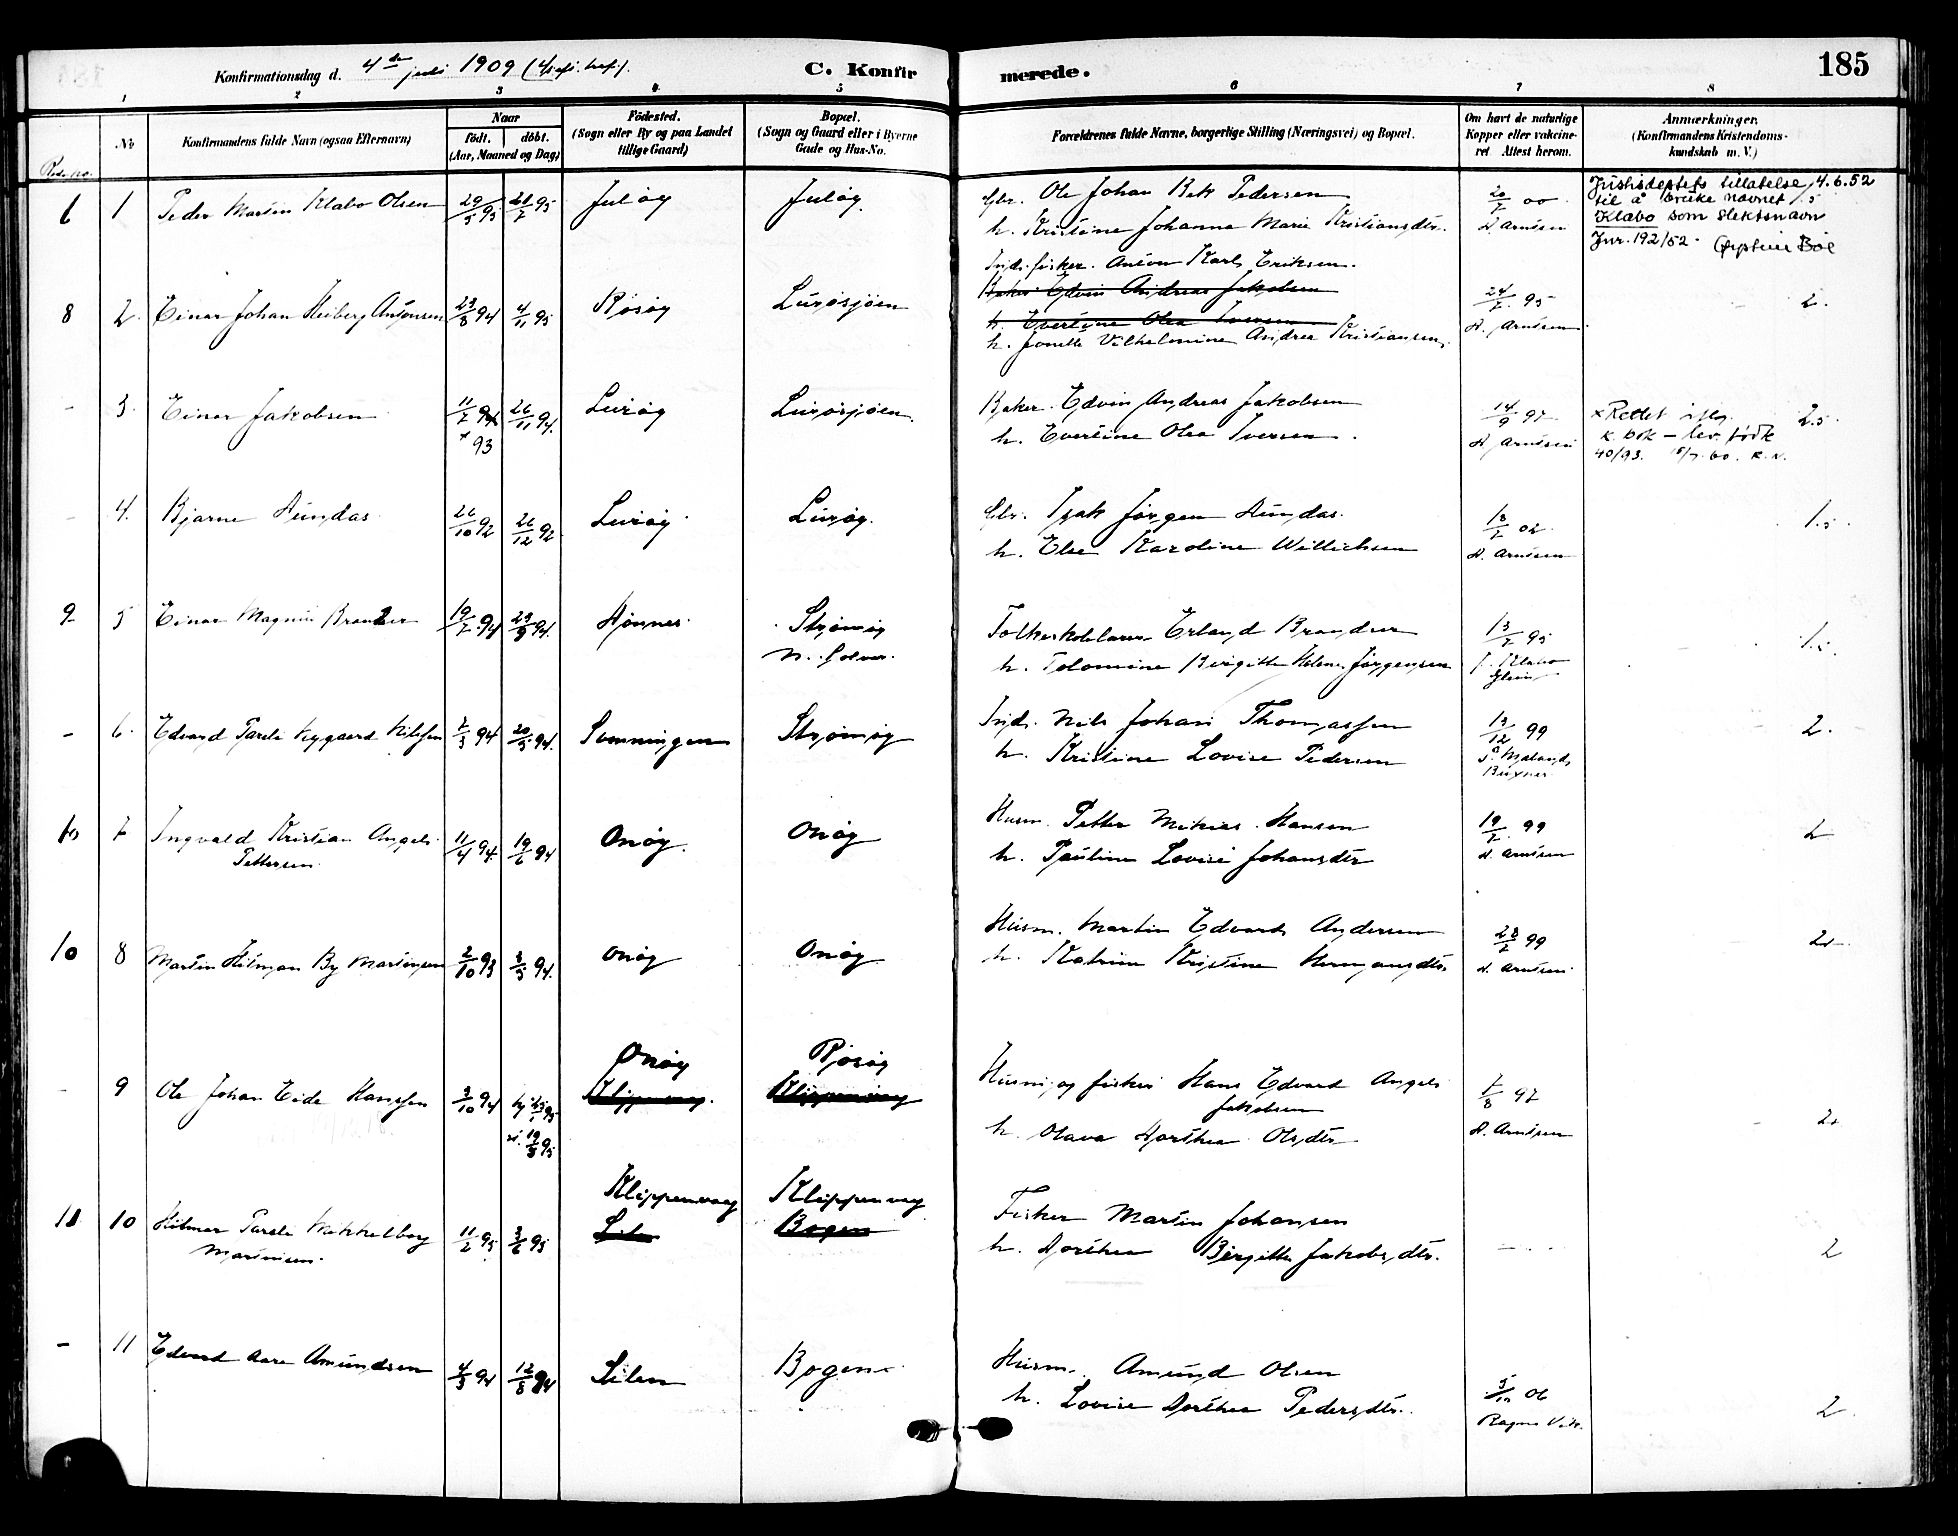 185
Konfirmationsdag d. 4de juli 1909
C. Konfirmerede.
1 2 3 4 5 6 7 8
No
Konfirmandens fulde Navn (ogsaa Efternavn)
Naar
født. døbt.
(Aar, Maaned og Dag)
Fødested.
(Sogn eller By og paa Landet
tillige Gaard)
Bopæl.
(Sogn og Gaard eller i Byerne
Gade og Hus-No.
Forældrenes fulde Navne, borgerlige Stilling (Næringsvei) og Bopæl.
Om havt de naturlige
Kopper eller vakcine-
ret. Attest herom.
Anmærkninger.
(Konfirmandens Kristendoms-
kundskab m. V.)
1 Peder Martin Klabo Olsen 29/5 95 21/7 95 Juløy Juløy.
Gbr. Ole Johan Bek Pedersen
h. Kristine Johanna Marie Kristiansdtr.
20/7 00
A. Arntsen
Justisdeptets tillatelse 4.6.52
til å bruke navnet
Klabo som slektsnavn
Jnr. 192/52. Øystein Bøe
8 2. Einar Johan Heiberg Antonsen 23/8 94 4/11 95 Røsøy Lurøsjøen
Inds. fisker. Anton Karl Eriksen.
Baker Edvin Andreas Jakobsen
h. Evertine Olea Iversen
h. Jonette Vilhelmine Andrea Kristiansen,
24/7 95
A. Arntsen
2.
- 3. Einar Jakobsen 11/7 94 x 93 26/11 94. Lurøy Lurøsjøen.
Baker. Edvin Andreas Jakobsen
h. Evertine Olea Iversen.
14/9 97
A. Arntsen
x Rettet iflg.
k. bok — lev. født
40/93. 15/7. 60. K. N.
2.5
- 4. Bjarne Hundas 26/10 92 26/12 92 Lurøy Lurøy.
Gbr. Isak Jørgen Hundas
h. Else Karoline Willichsen
13/7 02
A. Arntsen
1.5
9 5 Einar Magnus Brandser 19/7 94 23/9 94. Hønnes Strømøy
Folkeskolelærer Erland Brandser
h. Tolomine Birgitte Helene Jørgensen
13/7 95
Klabo
1.5
- 6. Edvard Parele Nygaard Nilssen 7/3 94 20/5 94. Sommingen Strømøy
Inds. Nils Johan Thomassen
h. Kristine Lovise Pedersen
19/12 99
2.
10 7 Ingvald Kristian Angels
Pettersen 11/4 94. 19/6 94 Onøy. Onøy
Husm. Petter Mikias Hansen
h. Pauline Lovise Johansdtr
19/7 99
A. Arntsen
2
10 8 Martin Hilman By Martinsen 2/10 93 3/5 94. Onøy Onøy
Husm. Martin Edvard Andersen
h. Katrine Kristine Hermansdtr.
28/7 99
A. Arntsen
2.
- 9 Ole Johan Eide Hanssen 3/10 94 Onøy Røsøy
Klippenvaag. Klippenvaag
Husm. og fisker Hans Edvard Angels
Jakobsen
h. Olava Dorthea Olsdtr
7/8 97
A. Arntsen
2.
11 10 Hilmer Parele Nakkelborg
Martinsen. 11/2 95 3/6 95 Klippenvaag Klippenvaag
Silen Bogen
Fisker Martin Johansen
h. Dorthea Birgitte Jakobsdtr.
2
- 11 Edvard Aare Amundsen 4/3 94 12/8 94 Silen Bogen
Husm. Amund Olsen
h. Lovise Dorthea Pedersdtr.
06
Ragna Vik.
2.